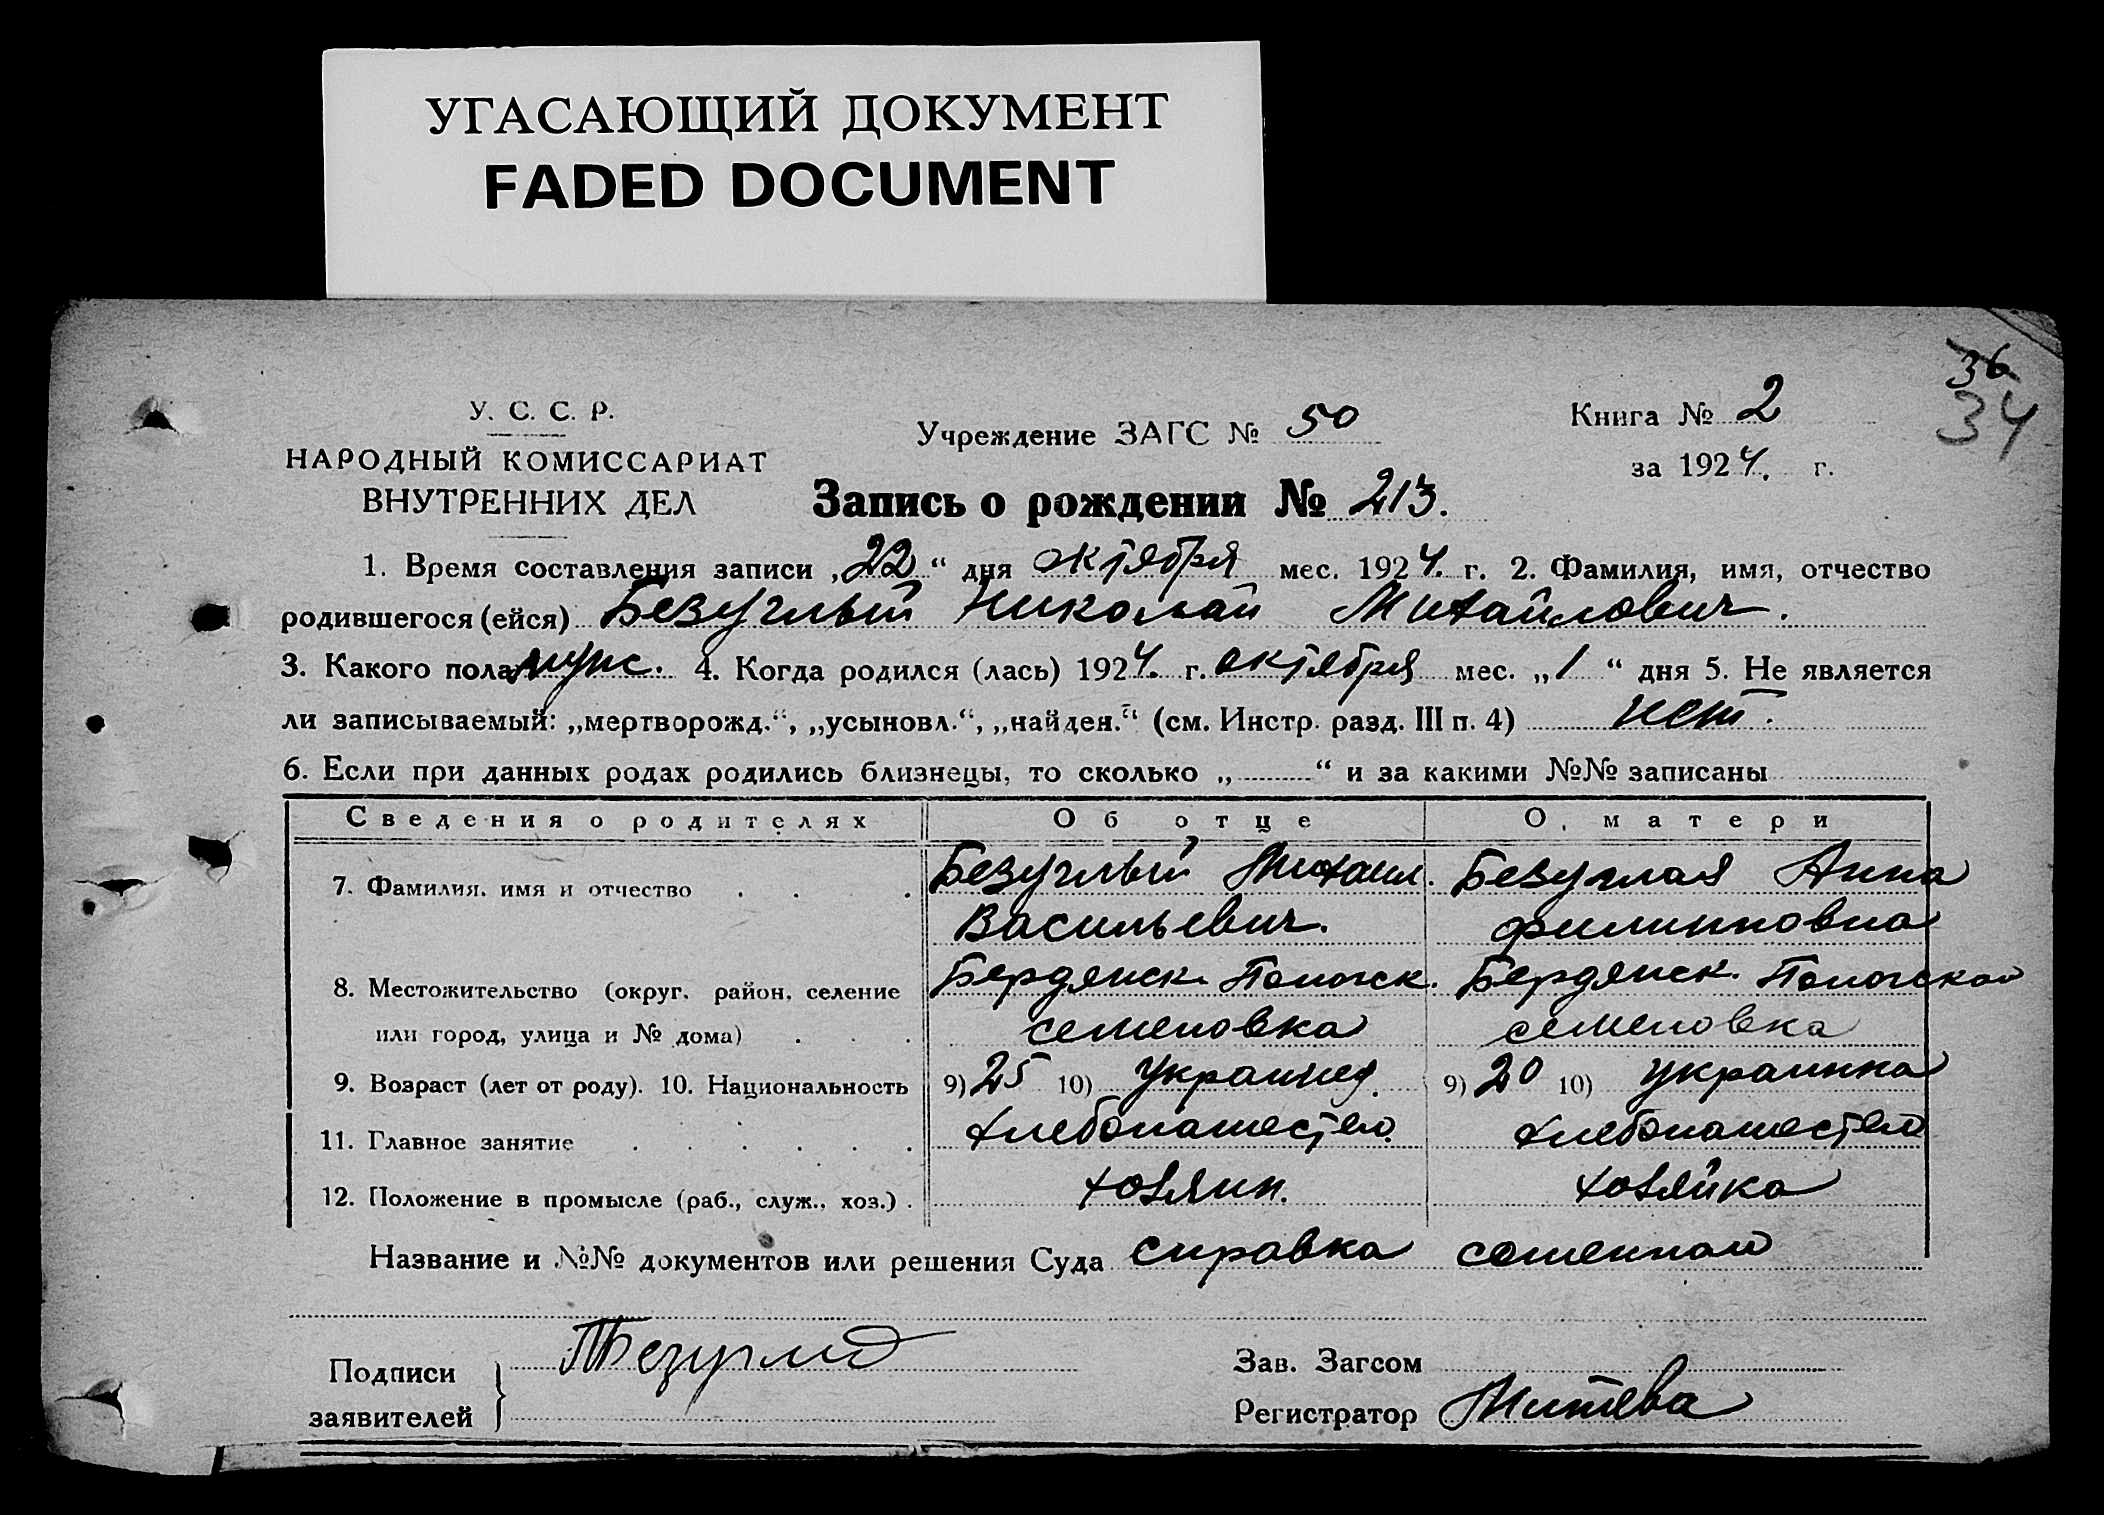 УГАСАЮЩИЙ ДОКУМЕНТ
FADED DOCUMENT
36
34
У. С. С. Р.
НАРОДНЫЙ КОМИССАРИАТ
ВНУТРЕННИХ ДЕЛ
Учреждение ЗАГС № 50
Книга № 2
за 1924. г.
Запись о рождении № 213.
1. Время составления записи „22“ дня октября мес. 1924. г. 2. Фамилия, имя, отчество
родившегося (ейся) Безуглый Николай Михайлович.
3. Какого пола муж. 4. Когда родился (лась) 1924. г. октября мес. „1“ дня 5. Не является
ли записываемый: „мертворожд.“, „усыновл.“, „найден.“ (см. Инстр. разд. III п. 4) нет.
6. Если при данных родах родились близнецы, то сколько „ “ и за какими №№ записаны
Сведения о родителях Об отце О матери
7. Фамилия, имя и отчество Безуглый Михаил. Безуглая Анна
Васильевич. Филипповна
8. Местожительство (округ, район, селение Бердянск. Пологск. Бердянск. Пологской
или город, улица и № дома) Семеновка Семеновка
9. Возраст (лет от роду). 10. Национальность 9) 25 10) Украинец. 9) 20 10) украинка
11. Главное занятие хлебопашество. хлебопашество
12. Положение в промысле (раб., служ., хоз.) хозяин. хозяйка
Название и №№ документов или решения Суда справка
Подписи
заявителей
Зав. Загсом
Регистратор